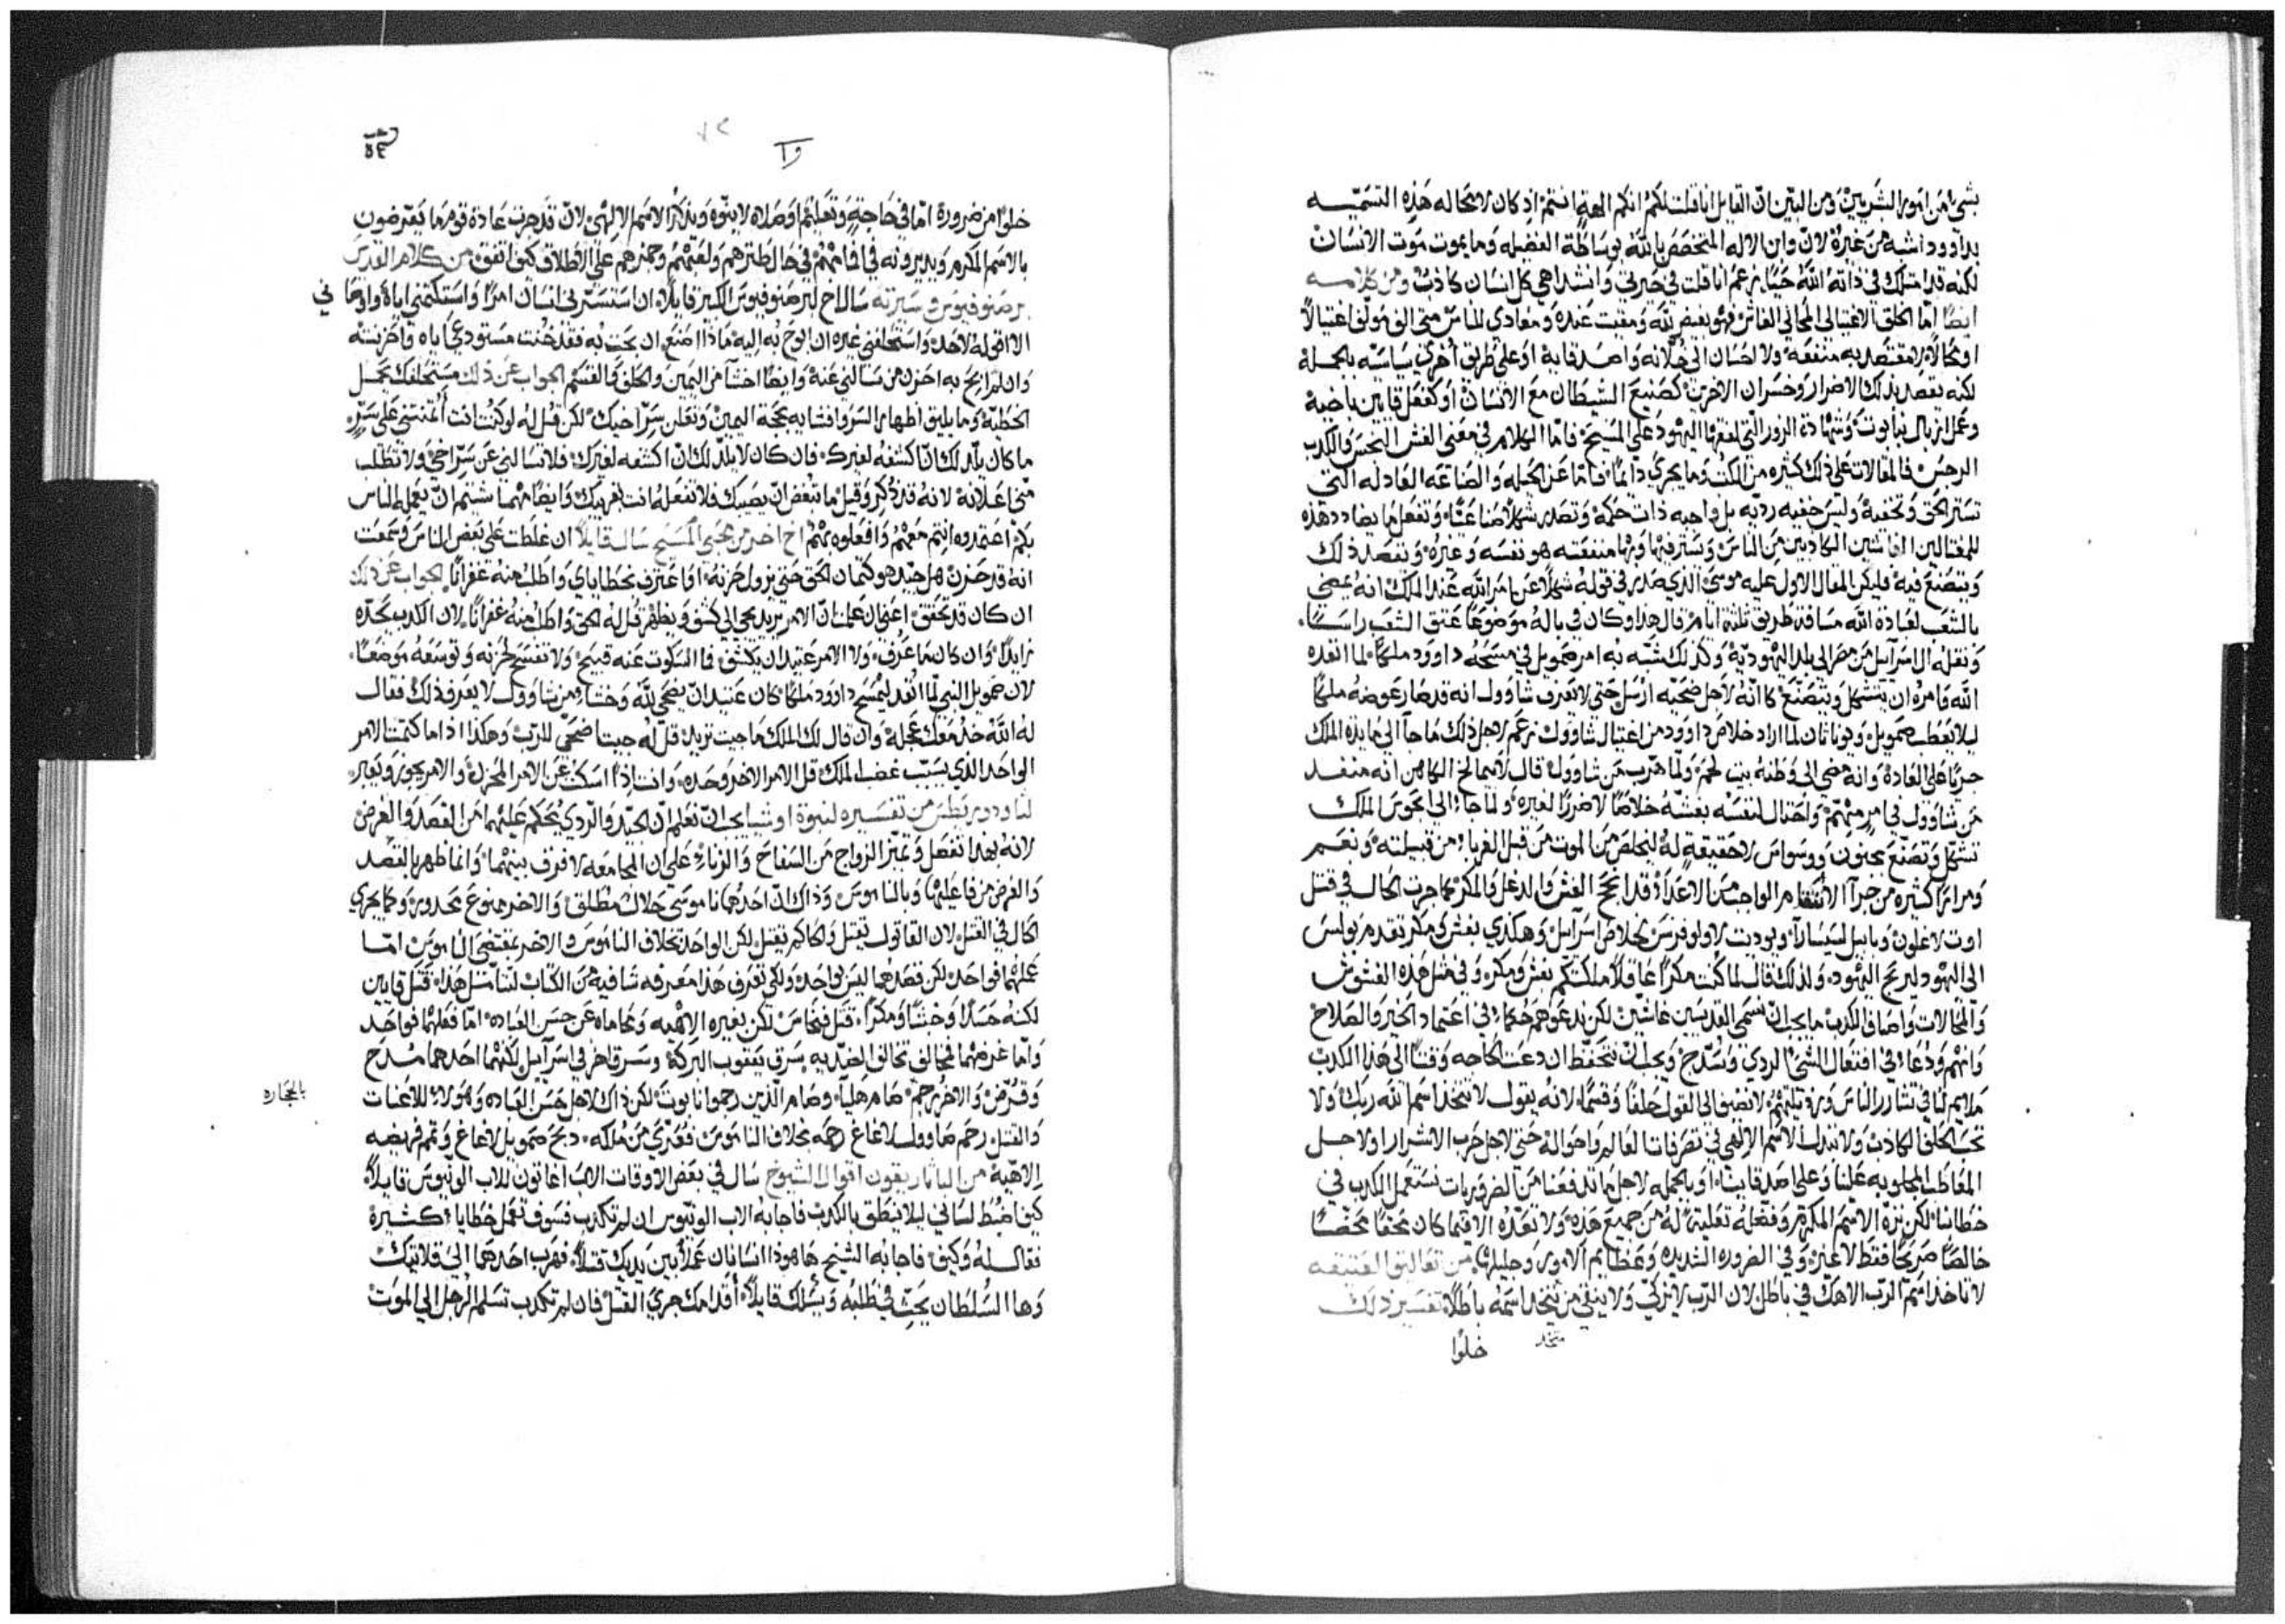 بشيء من امور البشريين ومن البين ان القايل انا قلت لكم انكم الهة انتم اذ كان لا محاله هذه التسميه
بداوود اشبه من غيره لان وابن الاله المتخصص بالله بوساطة الفضيله وما يموت موت الانسان
لكنه قد امتلك في ذاته الله حيا زعم انا قلت في حيرتي وانشداهي كل انسان كاذب ومن كلامه
ايضا اما الحلق الاغتيالي المجاني الغاش فهو بغيض لله ومقيت عنده ومعادي للناس متى الف مولف اغتيالا
او محالا لا يقتصد به منفعه ولا احسان الى خلانه واصدقايه او على طريق اخرى سياسته بالجملة
لكنه يقصد بذلك الاضرار وخسران الاخرين كصنيع الشيطان مع الانسان او كفعل قايين باخيه
وعمل ازبال بنابوت وشهادة الزور التي لليهود على المسيح فاما الكلام في معنى الغش النجس والكذب
الرجس فالمقالات على ذلك كثيره من الكتب وما يجري دائما فاما عن الحيله والصناعه العادله التي
تستر الحق وتخفيه وليس خفيه رديه بل واجبه ذات حكمة وتصدر شكلا صناعيا وتفعل ما يضادد هذه
للمغتالين الغاشين الكاذبين من الناس وتسترفيها وبها منفعته هو نفسه وغيره ويقصد ذلك
ويتصنع فيه فليكن المقال الاول عليه موسى الذي صدر في قوله شكلا عن امر الله عند الملك انه يمضي
بالشعب لعبادة الله مسافة طريق ثلثة ايام قال هذا وكان في باله موضوعا عتق الشعب راسا
ونقله الاسرآيل من مصر الى بلد اليهودية وكذلك شبه به امر صمويل في مسحه داوود ملكا لما انفده
الله وامره ان يتشكل ويتصنع كانه لاجل ضحيه ارسل حتى لا يعرف شاوول انه قد صار عوضه ملكا
ليلا يعطب صمويل ويوناثان لما اراد خلاص داوود من اغتيال شاوول زعم لاجل ذلك ما جآ الى مايدة الملك
جريا على العادة وانه مضى الى وطنه بيت لحم ولما هرب من شاوول قال لابيمالخ الكاهن انه منفد
من شاوول في امر مهم واحتال لنفسه بغشه خلاصا لا ضررا لغيره ولما جا الى انخوس الملك
تشكل وتصنع بجنون ووسواس لا حقيقة له ليخلص من الموت من قبل الغربا من قبيلته ونعم
ومرارا كثيره من جرآ الانتقام الواجب من الاعدآ قد انجح الغش والدغل والمكر كما جرت الحال في قتل
اوت لاغلون وياييل لسيسارآ ويوديت لاولوفرنس لخلاص اسرآيل وهكذي بغش ومكر تقدم بولس
الى اليهود ليربح اليهود ولذلك قال لما كنت مكرا عاقلا ملكتكم بغش ومكر وفي مثل هذه الغشوش
والمحالات واصناف الكذب ما يجب ان نسمي القديسين غاشين لكن ندعوهم حكما في اعتماد الخير والصلاح
وانهم ودعا في افتعال الشي الردي وسدج ويجب ان نتحفظ ان دعت الحاجه وقتا الى هذا الكذب
ملايم لنا في تشارر الناس ورذيلتهم لا نضف الى القول حلفا وقسما لانه يقول لا تتخذ اسم الله ربك ولا
تحب الحلف الكاذب ولا نبتدل الاسم الالهي في تصرفات العالم واحواله حتى لاجل حرب الاشرار او لاجل
المعاطب المجلوبه علينا وعلى اصدقاينا او بالجمله لاجل ما تدفعنا من الضروريات نستعمل الكذب في
خطابنا لكن ننزه الاسم المكرم ونفضله تعلية له من جميع هذه ولا نعده الا فيما كان محقا محضا
خالصا صريحا فقط لا غير وفي الضروره الشديده وعظايم الامور وجليلها من تعاليق العتيقه
لا تاخذ اسم الرب الاهك في باطل لان الرب لا يزكي ولا ينقي من يتخذ اسمه باطلا تفسير ذلك
متخد
خلوا
وا
٥٤
خلوا من ضرورة اما في حاجة وتعليم او صلاه لا ينوه ويذكر الاسم الالهي لان قد جرت عادة قوم ما يتعرضون
بالاسم المكرم ويديرونه في افامهم في حال طنزهم ولعبهم وحمزهم على الاطلاق كيف اتفق من كلام القديس
برصنوفيوس وسيرته سال اخ لبرصنوفيوس الكبير قايلا ان استسترني انسان امرا واستكتمني اياه واوصاني
الا اقوله لاحد واستحلفني غيره ان ابوح به اليه ماذا اصنع ان بحت به فقد خنت مستودعي اياه واحزنته
وان لم ابح به احزن من سالني عنه وايضا اخشآ من اليمين والحلف والقسم الجواب عن ذلك مستحلفك يحمل
الخطية وما يليق اظهار السر وافشايه بحجة اليمين وتعلن سر اخيك لكن قل له لو كنت انت أئتمنتني على سر
ما كان يلذ لك ان اكشفه لغيرك فان كان لا يلذ لك ان اكشفه لغيرك فلا تسالني عن سر اخي ولا تطلب
مني اعلانه لانه قد ذكر وقيل ما تبغض ان يصيبك فلا تفعله انت بغريبك وايضا مهما شيتم ان يعمله الناس
بكم اعتمدوه انتم معهم وافعلوه بهم اخ اخر من محبي المسيح سال قايلا ان غلطت على بعض الناس وسمعت
انه قد حزن هل جيد هو كتمان الحق حتى يزول حزنه او اعترف بخطاياي واطلب منه غفرانا الجواب عن ذلك
ان كان قد تحقق اعني ان علمت ان الامر يريد يجي الى كشف ويظهر قل له الحق واطلب منه غفرانا لان الكذب يحده
زايدا وان كان ما عرف ولا الامر عتيد ان يكشف فما السكوت عنه قبيح ولا تفسح لحزنه وتوسعه موضعا
لان صمويل النبي لما انفد ليمسح داوود ملكا كان عتيد ان يضحي لله وخشا من شاوول لا يعرف ذلك فقال
له الله خذ معك عجله وان قال لك الملك ما جيت تريد قل له جيت اضحي للرب وهكذا اذ اما كتمت الامر
الواحد الذي يسبب غضب الملك قل الامر الاخر وحده وانت اذا اسكت عن الامر المحزن والامر يجوز ويعبر
لثاودوريطس من تفسيره لنبوة اوشيا يجب ان نعلم ان الجيد والردي يحكم عليهما من القصد والغرض
لانه بهذا نفصل ونميز الزواج من السفاح والزنا على ان المجامعه لا فرق بينهما وانما ظهر بالقصد
والغرض من فاعليها وبالناموس وذاك ان احدهما ناموسي حلال مطلق والاخر ممنوع محدور وكما يجري
الحال في القتل لان القاتول يقتل والحاكم يقتل لكن الواحد بخلاف الناموس والاخر بمقتضى الناموس اما
عملهما فواحد لكن قصدهما ليس بواحد ولكي نعرف هذا معرفه شافيه من الكتاب لنتامل هذا قتل قايين
لكنه حسدا وخبثا ومكرا قتل فنحاس لكن بغيره الاهيه ومحاماه عن حسن العباده اما فعلهما فواحد
واما غرضهما فمخالف تخالف الضديه سرق يعقوب البركة وسرق اخر في اسرآيل لكنهما احدهما مدح
وقرض والاخر رجم صام هلياء وصام الذين رجموا نابوت لكن ذاك لاجل حسن العباده وهولا للاعنات
بالحجاره
والقتل رحم شاوول لاغاغ رحمه بخلاف الناموس فعري من ملكه ذبح صمويل لاغاغ وتمم فريضه
الاهية من الباتاريقون اقوال الشيوخ سال في بعض الاوقات الاب اغاثون للاب الونيوس قايلا
كيف اضبط لساني ليلا ينطق بالكذب فاجابه الاب الونيوس ان لم تكذب فسوف تعمل خطايا كثيرة
فقال له وكيف فاجابه الشيخ هاهوذا انسانان عملا بين يديك قتلا فهرب احدهما الى قلايتك
وها السلطان يجث في طلبه ويسلك قايلا أقدامك جرى القتل فان لم تكذب تسلم الرجل الى الموت